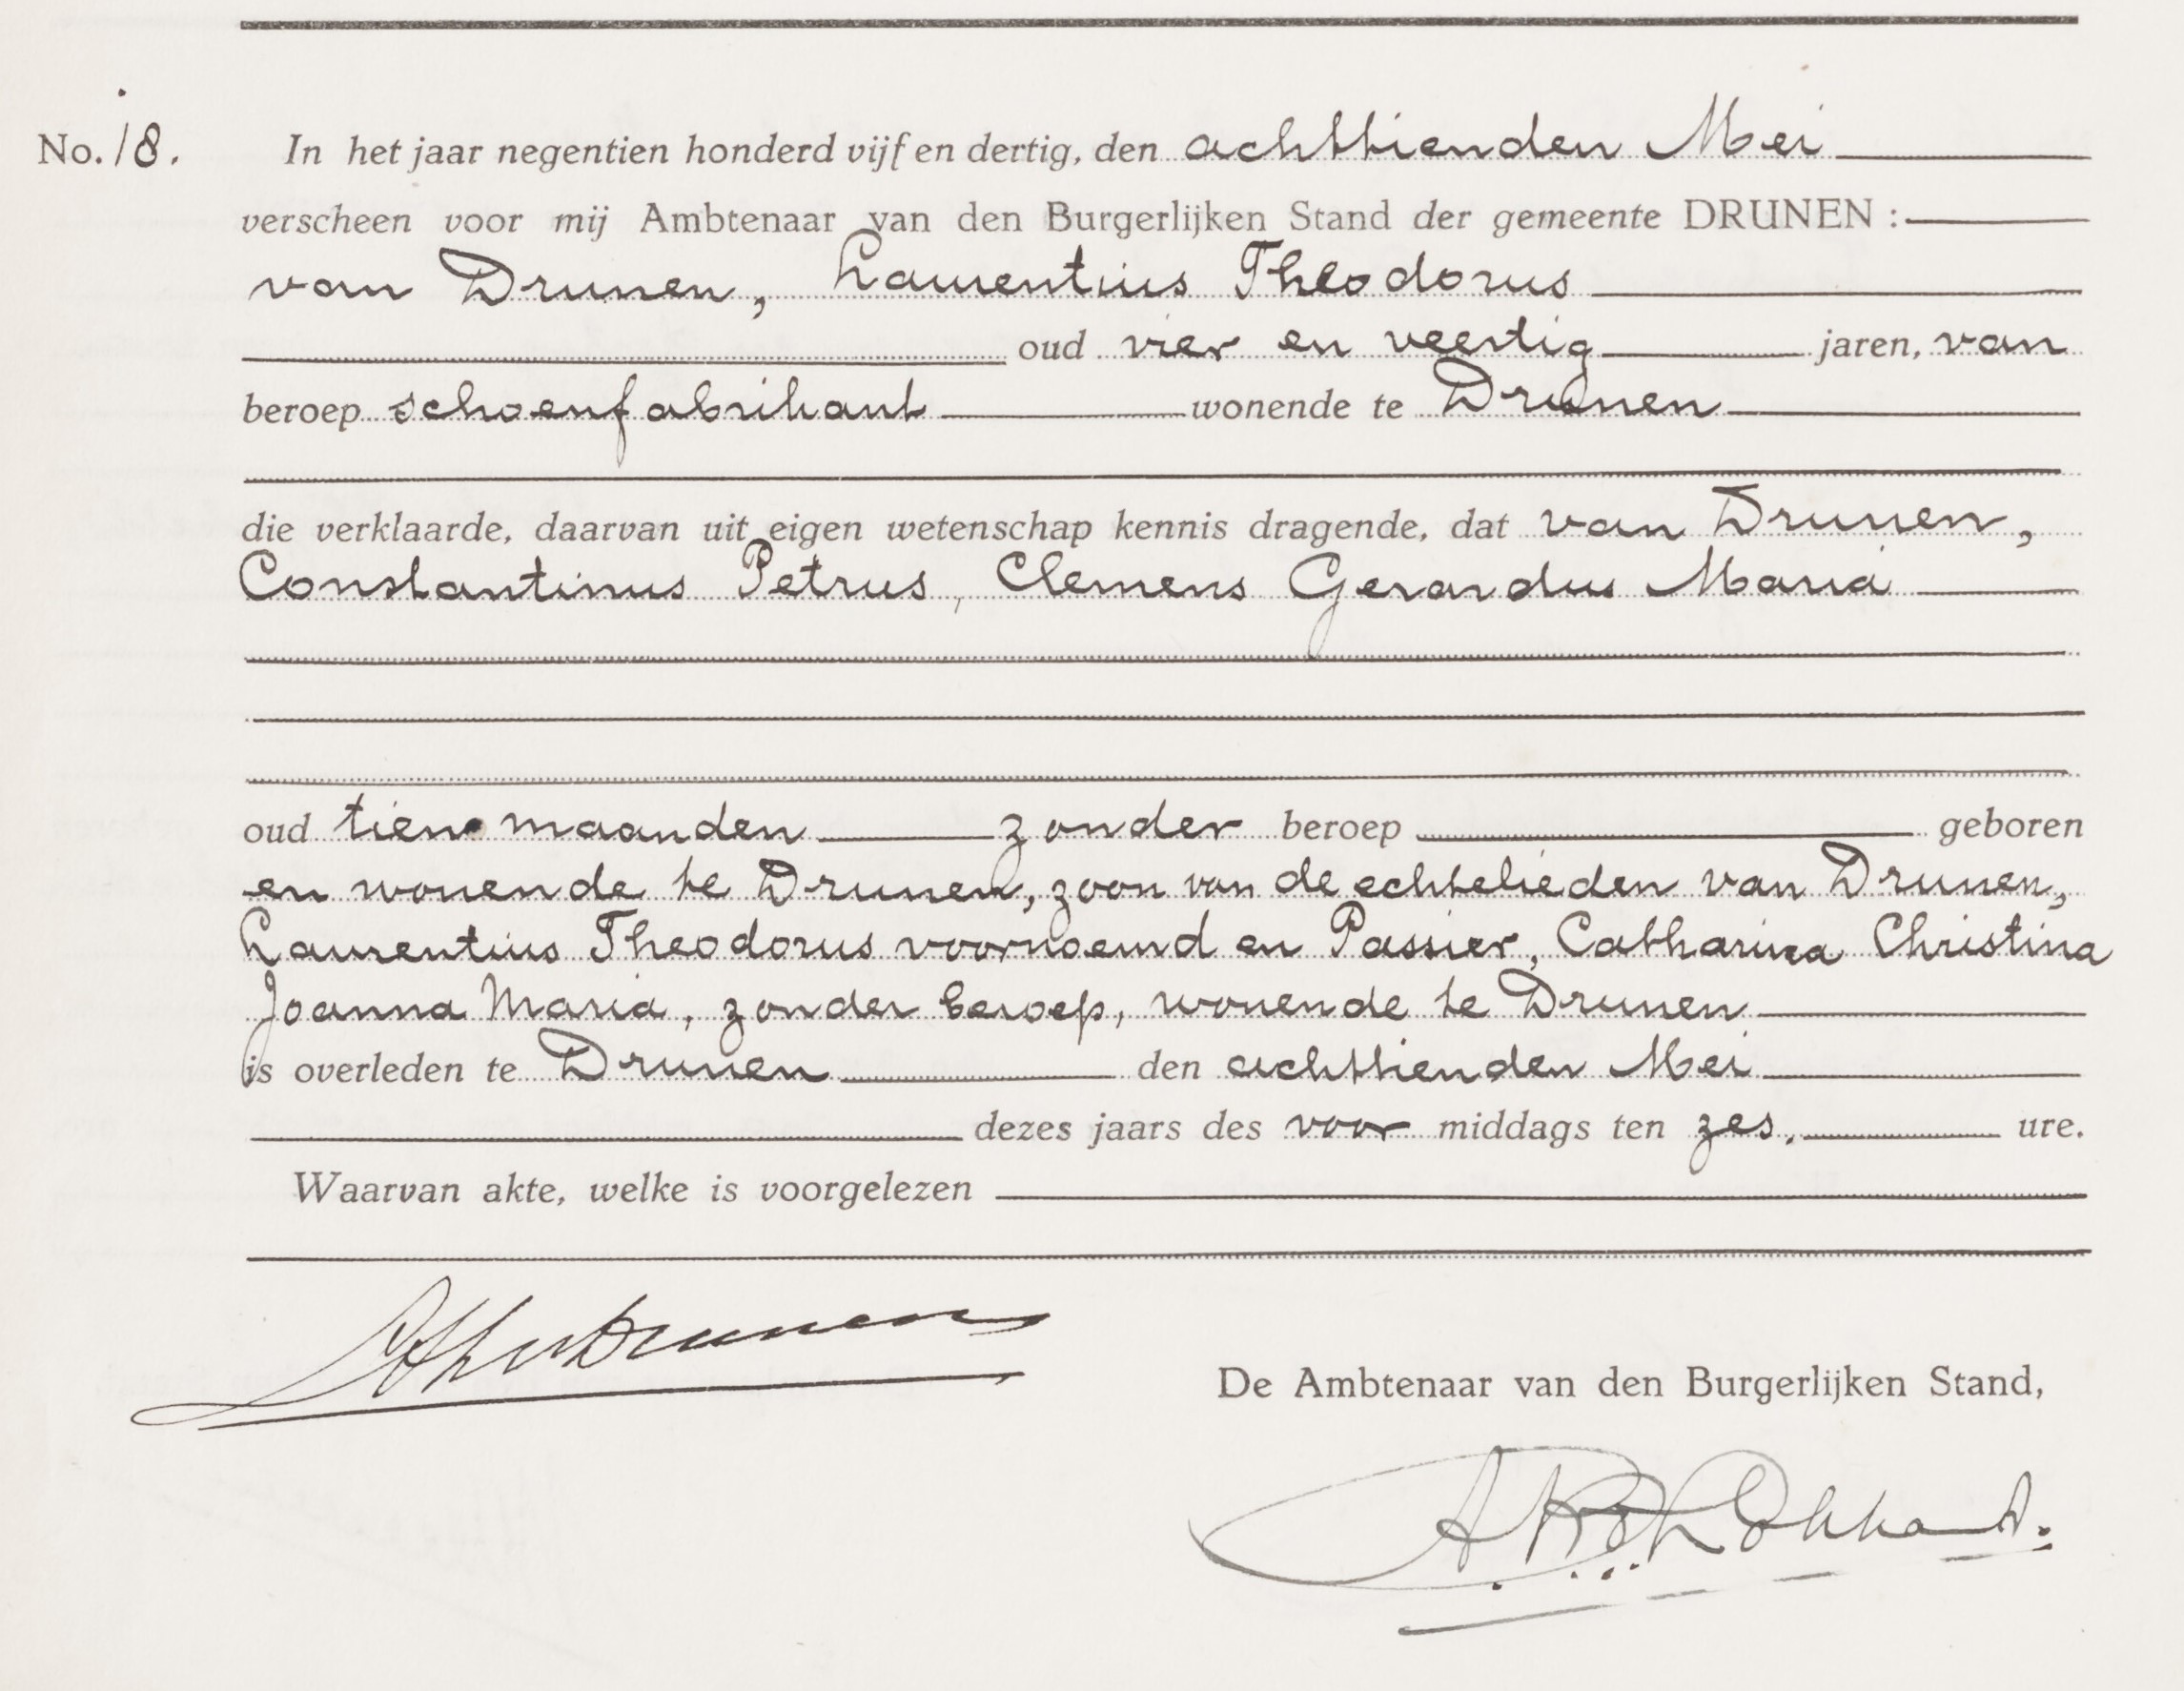 No. 18. In het jaar negentien honderd vijf en dertig, den achttienden Mei
verscheen voor mij Ambtenaar van den Burgerlijken Stand der gemeente DRUNEN :
van Drunen, Laurentius Theodorus
oud vier en veertig jaren, van
beroep schoenfabrikant wonende te Drunen
die verklaarde, daarvan uit eigen wetenschap kennis dragende, dat van Drunen,
Constantinus Petrus, Clemens Gerardus Maria
oud tien maanden zonder beroep geboren
en wonende te Drunen, zoon van de echtelieden van Drunen,
Laurentius Theodorus voornoemd en Passier, Catharina Christina
Joanna Maria, zonder beroep, wonende te Drunen
is overleden te Drunen den achttienden Mei
dezes jaars des voor middags ten zes. ure.
Waarvan akte, welke is voorgelezen
De Ambtenaar van den Burgerlijken Stand,